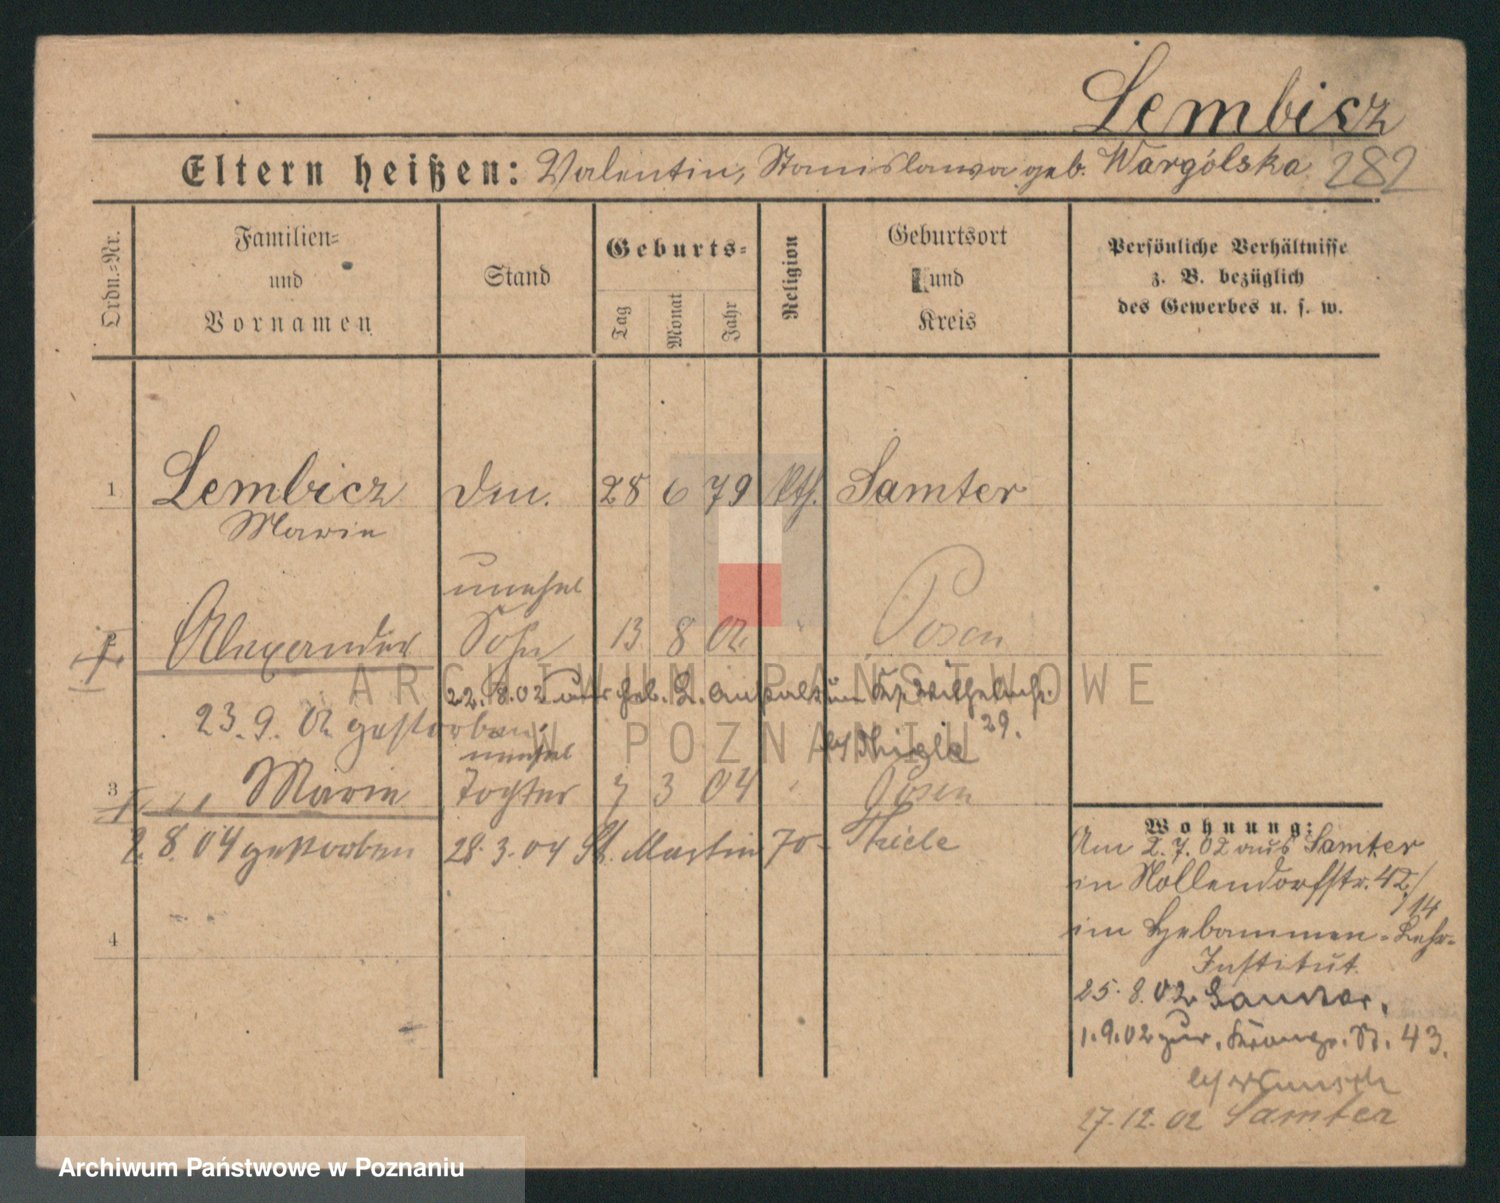 Lembicz
Eltern heißen: Valentin, Stanislawa geb. Wargólska 282
Ordn.=Nr.
Familien=
und
Vornamen
Stand
Geburts=
Tag
Monat
Jahr
Religion
Geburtsort
und
Kreis
Persönliche Verhältnisse
z. B. bezüglich
des Gewerbes u. s. w.
1 Lembicz 28 6 79 kth. Samter
Marie
unehel
2 Alexander Sohn 13 8 02 Posen
22.8.02
23.9.02 gestorben
29.
unehel
3 Marie Tochter 7 3 04 Posen
2.8.04 gestorben 28.3.04 St. Martin 70 Thiele
4
Wohnung:
Am 2.7.02 aus Samter
in Nollendorfstr. 42/
14
im Hebammen=Lehr=
Institut
25.8.02
1.9.02 zur. 43.
27.12.02 Samter
ARCHIWUM PAŃSTWOWE
W POZNANIU
Archiwum Państwowe w Poznaniu